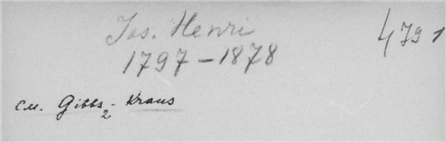 Jos. Henri 4791
1797-1878
см. Gibbs2- Kraus